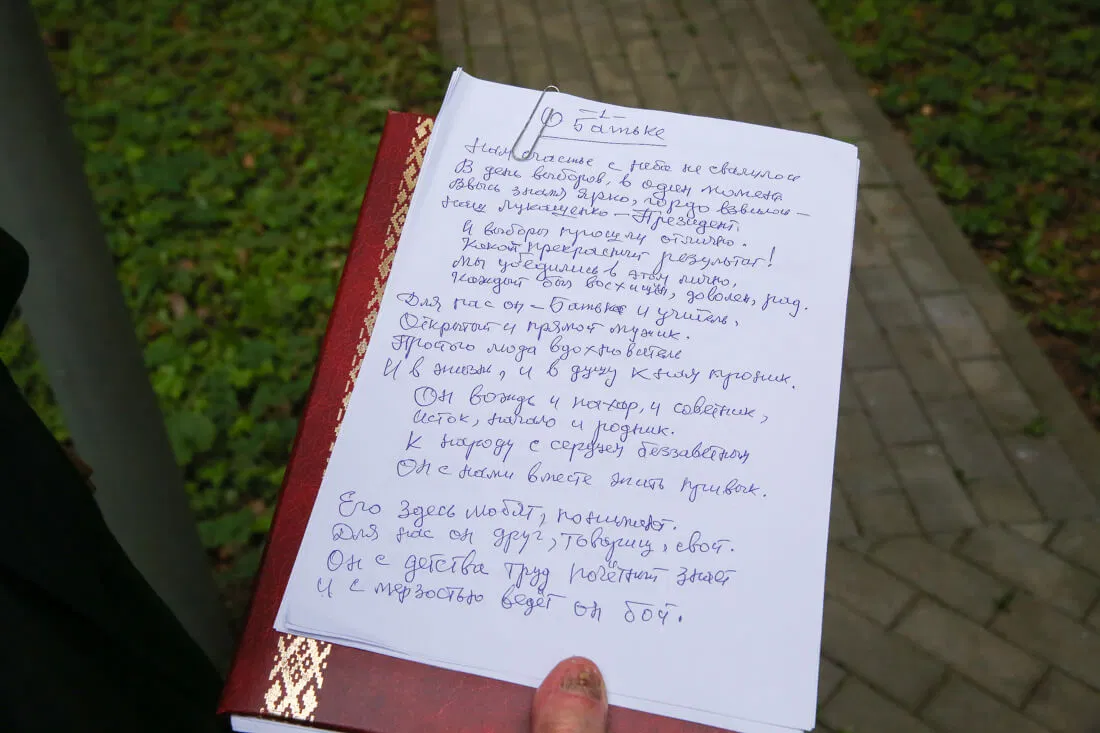 -1-
О Батьке
Нам счастье с неба не свалилось
В день выборов, в один момент
Ввысь знамя ярко, гордо взвилось –
Наш Лукашенко – Президент.
И выборы прошли отлично.
Какой прекрасный результат!
Мы убедились в этом лично,
Каждый был восхищён, доволен, рад.
Для нас он – Батька и учитель,
Открытый и прямой мужик.
Простого люда вдохновитель
И в жизнь, и в душу к ним проник.
Он вождь и пахар, и советник,
Исток, начало и родник.
К народу с сердцем беззаветным
Он с нами вместе жить привык.
Его здесь любят, понимают.
Для нас он друг, товарищ, свой.
Он с детства труд почётный знает
И с мерзостью ведёт он бой.